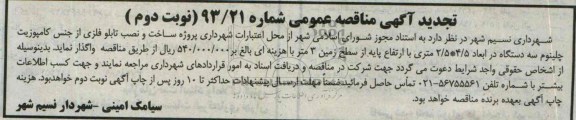 تجدید آگهی مناقصه عمومی شماره ۹۳/۲۱ (نوبت دوم )
شهرداری نسیم شهر در نظر دارد به استناد مجوز شورای اسلامی شهر از محل اعتبارات شهرداری پروژه ساخت و نصب تابلو فلزی از جنس کامپوزیت
چلنیوم سه دستگاه در ابعاد ۲/۵*۴/۵ متری با ارتفاع پایه از سطح زمین ۳ متر با هزینه ای بالغ بر ۵۴۰/۰۰۰/۰۰۰ ریال از طریق مناقصه واگذار نماید. بدینوسیله
از اشخاص حقوقی واجد شرایط دعوت می گردد جهت شرکت در مناقصه و دریافت اسناد به امور قراردادهای شهرداری مراجعه نمایند و جهت کسب اطلاعات
بیشتر با شماره تلفن ۵۶۷۵۵۵۶۱-۰۲۱ تماس حاصل فرمائید ضمناً مهلت ارسال پیشنهادات حداکثر تا ۱۰ روز پس از چاپ آگهی نوبت دوم خواهدبود. هزینه
چاپ آگهی بعهده برنده مناقصه خواهد بود.
سیامک امینی -شهردار نسیم شهر